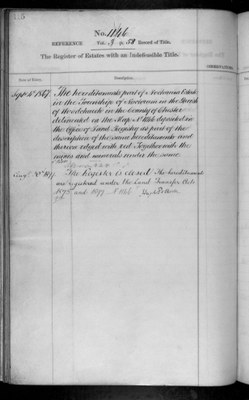 No. 1146
REFERENCE Vol. 3 p. 50 Record of Title.
The Register of Estates with an Indefeasible Title.
Date of Entry. Description.
Sept. 1867. The hereditaments part of Estate
in the Township of in the Parish
of in the County of Chester
delineated on the Map No. 1146 deposited in
the Office of Land Registry as part of the
description of the same hereditaments and
therein edged with red Together with the
mines and minerals under the same
The Register is closed. The hereditaments
are registered under the Land Transfer Acts
1875 and 1897.